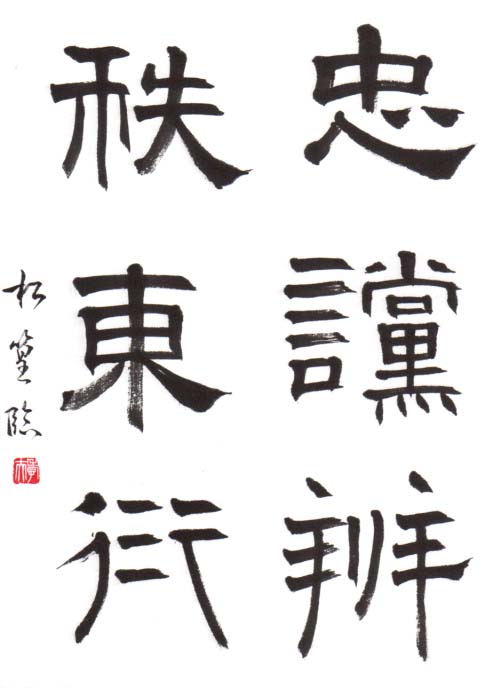 忠讜辨
秩東衍
松臨